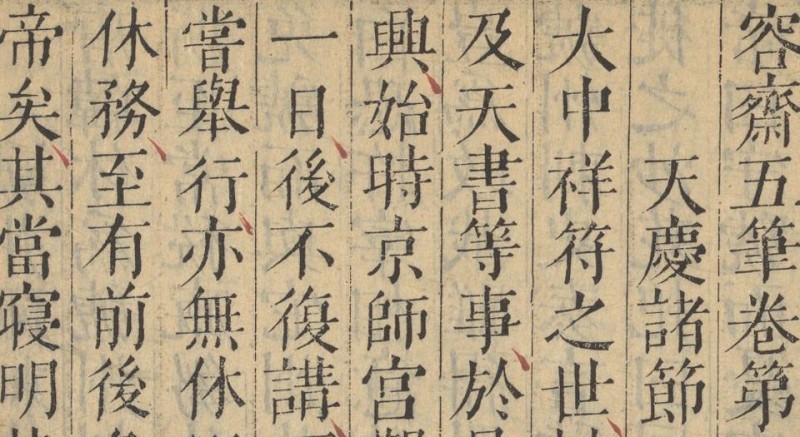 容齋五筆卷第
天慶諸節
大中祥符之世
及天書等事於
興始時京師宮
一日後不復講
嘗舉行亦無休
休務至有前後
帝矣其當寢明